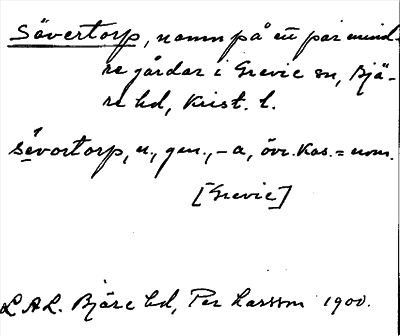 Sävertorp, namn på ett par mind-
re gårdar i Grevie sn, Bjä-
re hd, Krist. l.
sĕvortorp, n., gen., -a, övr. kas. = nom.
[Grevie]
L.A.L. Bjäre hd, Per Larsson 1900.